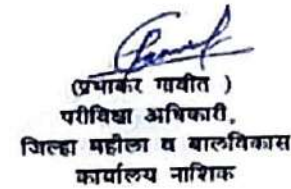 (प्रभाकर गावीत )
परीविक्षा अधिकारी,
जिल्हा महीला व बालविकास
कार्यालय नाशिक